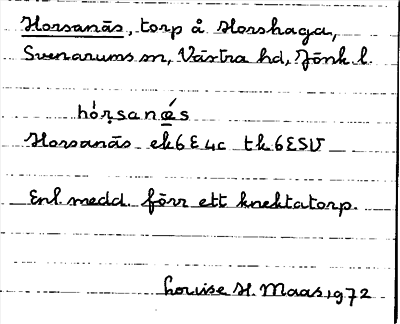 Horsanäs, torp å Horshaga,
Svenarums sn, Västra hd, Jönk. l.
hórsanǽs
Horsanäs ek 6 E 4c tk 6 E SV
Enl. medd. förr ett knektatorp.
Louise H. Maas, 1972